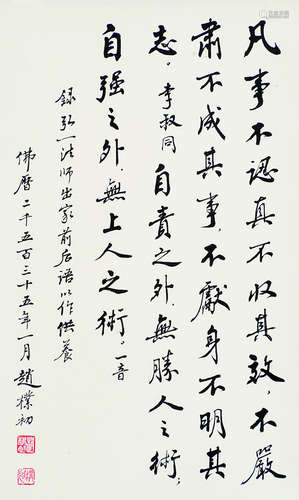 凡事不認真不收其效，不嚴
肅不成其事，不獻身不明其
志。李叔同 自責之外，無勝人之術；
自强之外，無上人之術。一音
録弘一法師出家前后语以作供養
佛曆二千五百三十五年一月 趙樸初